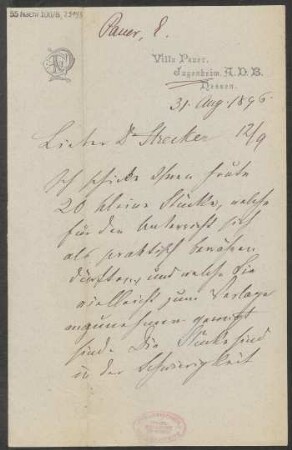 55 Nachl 100/B,
Pauer, E.
Villa Pauer.
Jugenheim. A. D. B.
Hessen.
31. Aug. 1896
Lieber Dr Strecker 12/9
Ich schicke Ihnen heute
20 kleine Stücke, welche
für den Unterricht sich
als praktisch bewähren
dürften, und welche Sie
vielleicht zum Verlage
anzunehmen geneigt
sind. Die Stücke sind
in der Schwierigkeit